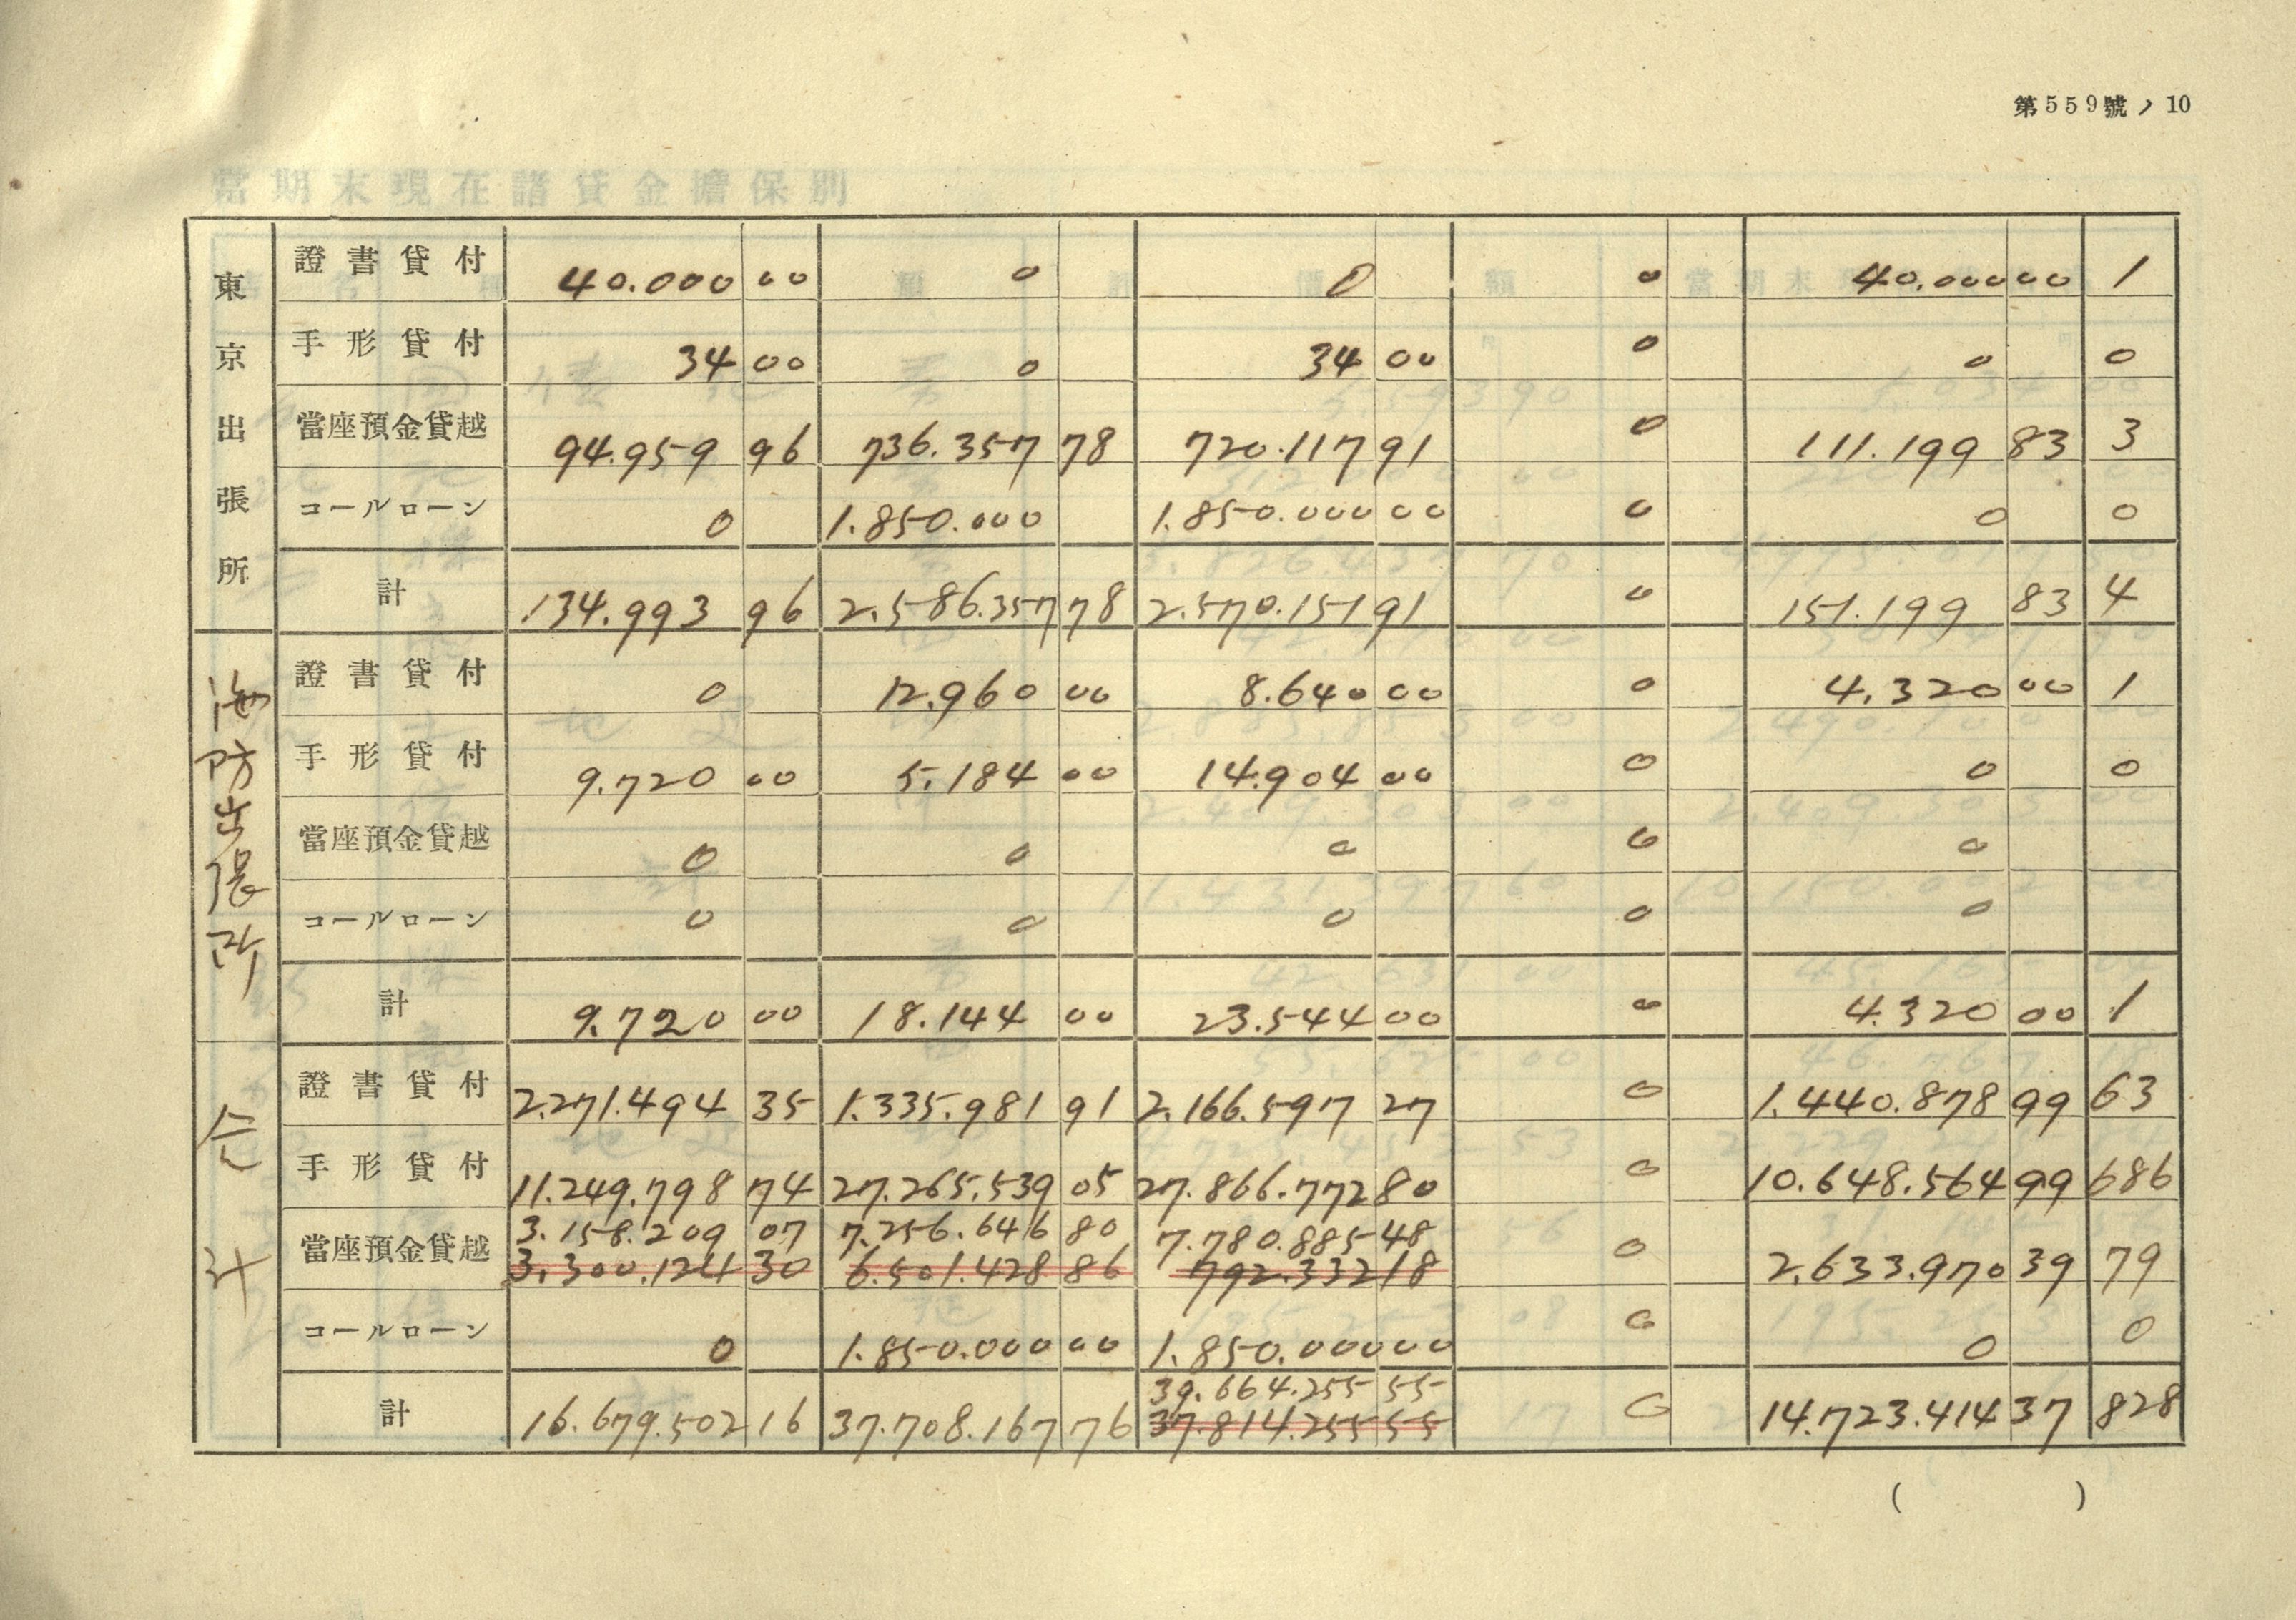 第559號ノ10
當期末現在諸貸金擔保別
東京出張所
證書貸付 40.000 00 0 0 0 40.000 00 1
手形貸付 34 00 0 34 00 0 0 0
當座預金貸越 94.959 96 736.357 78 720.117 91 0 111.199 83 3
コールローン 0 1.850.000 1.850.000 00 0 0 0
計 134.993 96 2.586.357 78 2.570.151 91 0 151.199 83 4
海防出張所
證書貸付 0 12.960 00 8.640 00 0 4.320 00 1
手形貸付 9.720 00 5.184 00 14.904 00 0 0 0
當座預金貸越 0 0 0 0 0
コールローン 0 0 0 0 0
計 9.720 00 18.144 00 23.544 00 0 4.320 00 1
合計
證書貸付 2.271.494 35 1.335.981 91 2.166.597 27 0 1.440.878 99 63
手形貸付 11.249.798 74 27.265.539 05 27.866.772 80 0 10.648.564 99 686
3.158.209 07 7.256.646 80 7.780.885 48
當座預金貸越 3.300.124 30 6.501.428 86 792.332 18 0 2.633.970 39 79
コールローン 0 1.850.000 00 1.850.000 00 0 0 0
39.664.255 55
計 16.679.502 16 37.708.167 76 37.814.255 55 0 14.723.414 37 828
( )